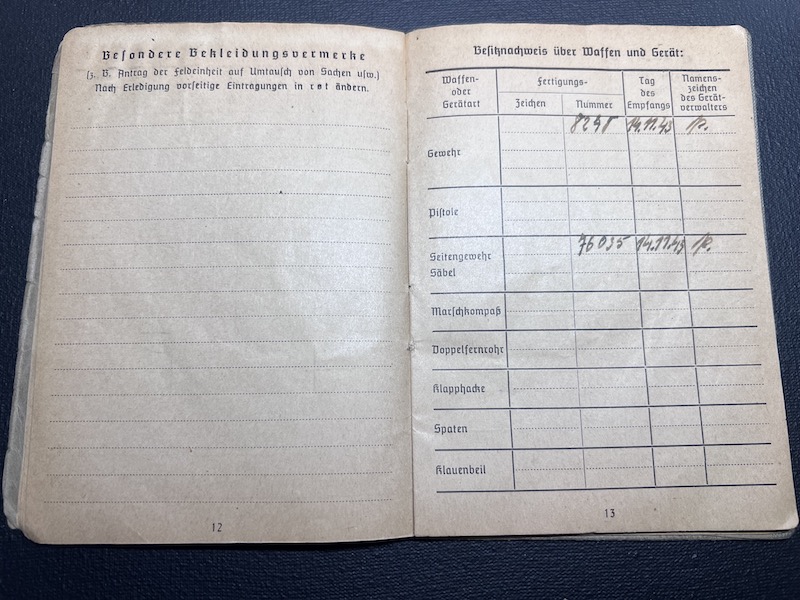 Besondere Bekleidungsvermerke
(z. B. Antrag der Feldeinheit auf Umtausch von Sachen usw.)
Nach Erledigung vorseitige Eintragungen in rot ändern.
12
Besitznachweis über Waffen und Gerät:
Waffen- oder Gerätart
Fertigungs-
Zeichen
Nummer
Tag des Empfangs
Namens- zeichen des Gerät- verwalters
Gewehr 8298 14.11.43
Pistole
Seitengewehr 76035 14.11.43
Säbel
Marschkompaß
Doppelfernrohr
Klapphacke
Spaten
Klauenbeil
13